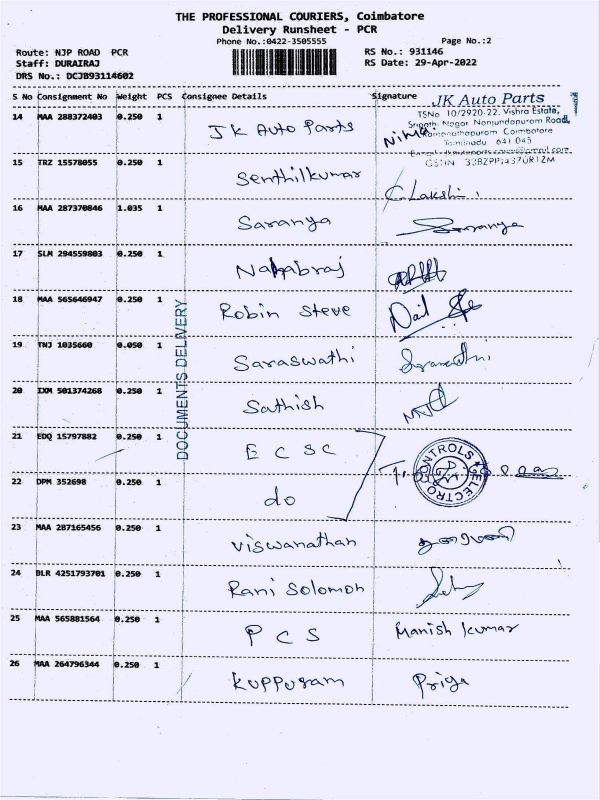 THE PROFESSIONAL COURIERS, Coimbatore
Delivery Runsheet - PCR
Phone No.:0422-3505555
Page No.:2
Route: NJP ROAD PCR
RS No.: 931146
Staff: DURAIRAJ
RS Date: 29-Apr-2022
DRS No.: DCJB93114602
S No Consignment No Weight PCS Consignee Details Signature
JK Auto Parts
14 MAA 288372403 0.250 1 JK Auto Parts
TSNo 10/2920-22, Vishra Estate,
Nagar Nanjundapuram Road,
Ramanathapuram Coimbatore
Tamilnadu 641 045
15 TRZ 15578055 0.250 1 Senthilkumar C. Lakshi
16 MAA 287370846 1.035 1 Saranya Saranya
17 SLM 294559803 0.250 1
18 MAA 565646947 0.250 1 Robin Steve
DOCUMENTS DELIVERY
19 TNJ 1035660 0.050 1 Saraswathi
20 IXM 501374268 0.250 1 Sathish
21 EDQ 15797882 0.250 1 E C S C
CONTROLS ELECTRO
22 DPM 352698 0.250 1 do
23 MAA 287165456 0.250 1 Viswanathan
24 BLR 4251793701 0.250 1 Rani Solomon
25 MAA 565881564 0.250 1 P C S Manish kumar
26 MAA 264796344 0.250 1 Kuppuram Priya